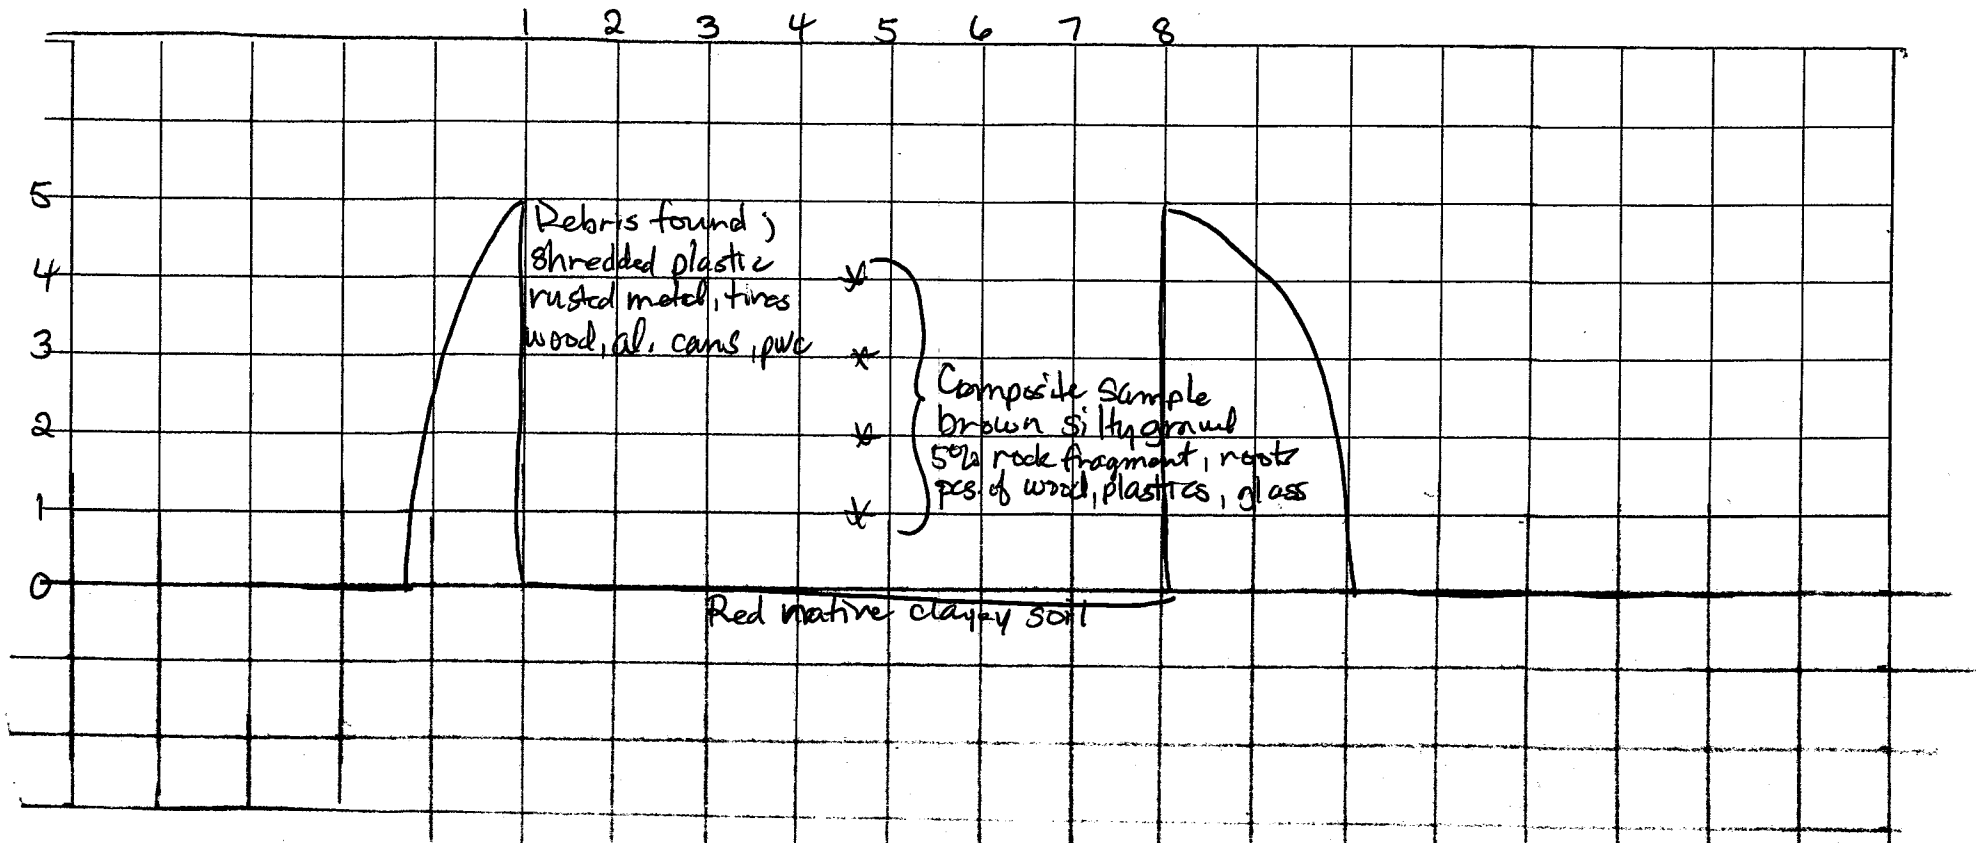 1 2 3 4 5 6 7 8
5
4
3
2
1
0
Debris found;
shredded plastic
rusted metal, tires
wood, al. cans, pvc
Composite Sample
brown silty gravel
5% rock fragment, roots
pcs. of wood, plastics, glass
Red native clayey soil